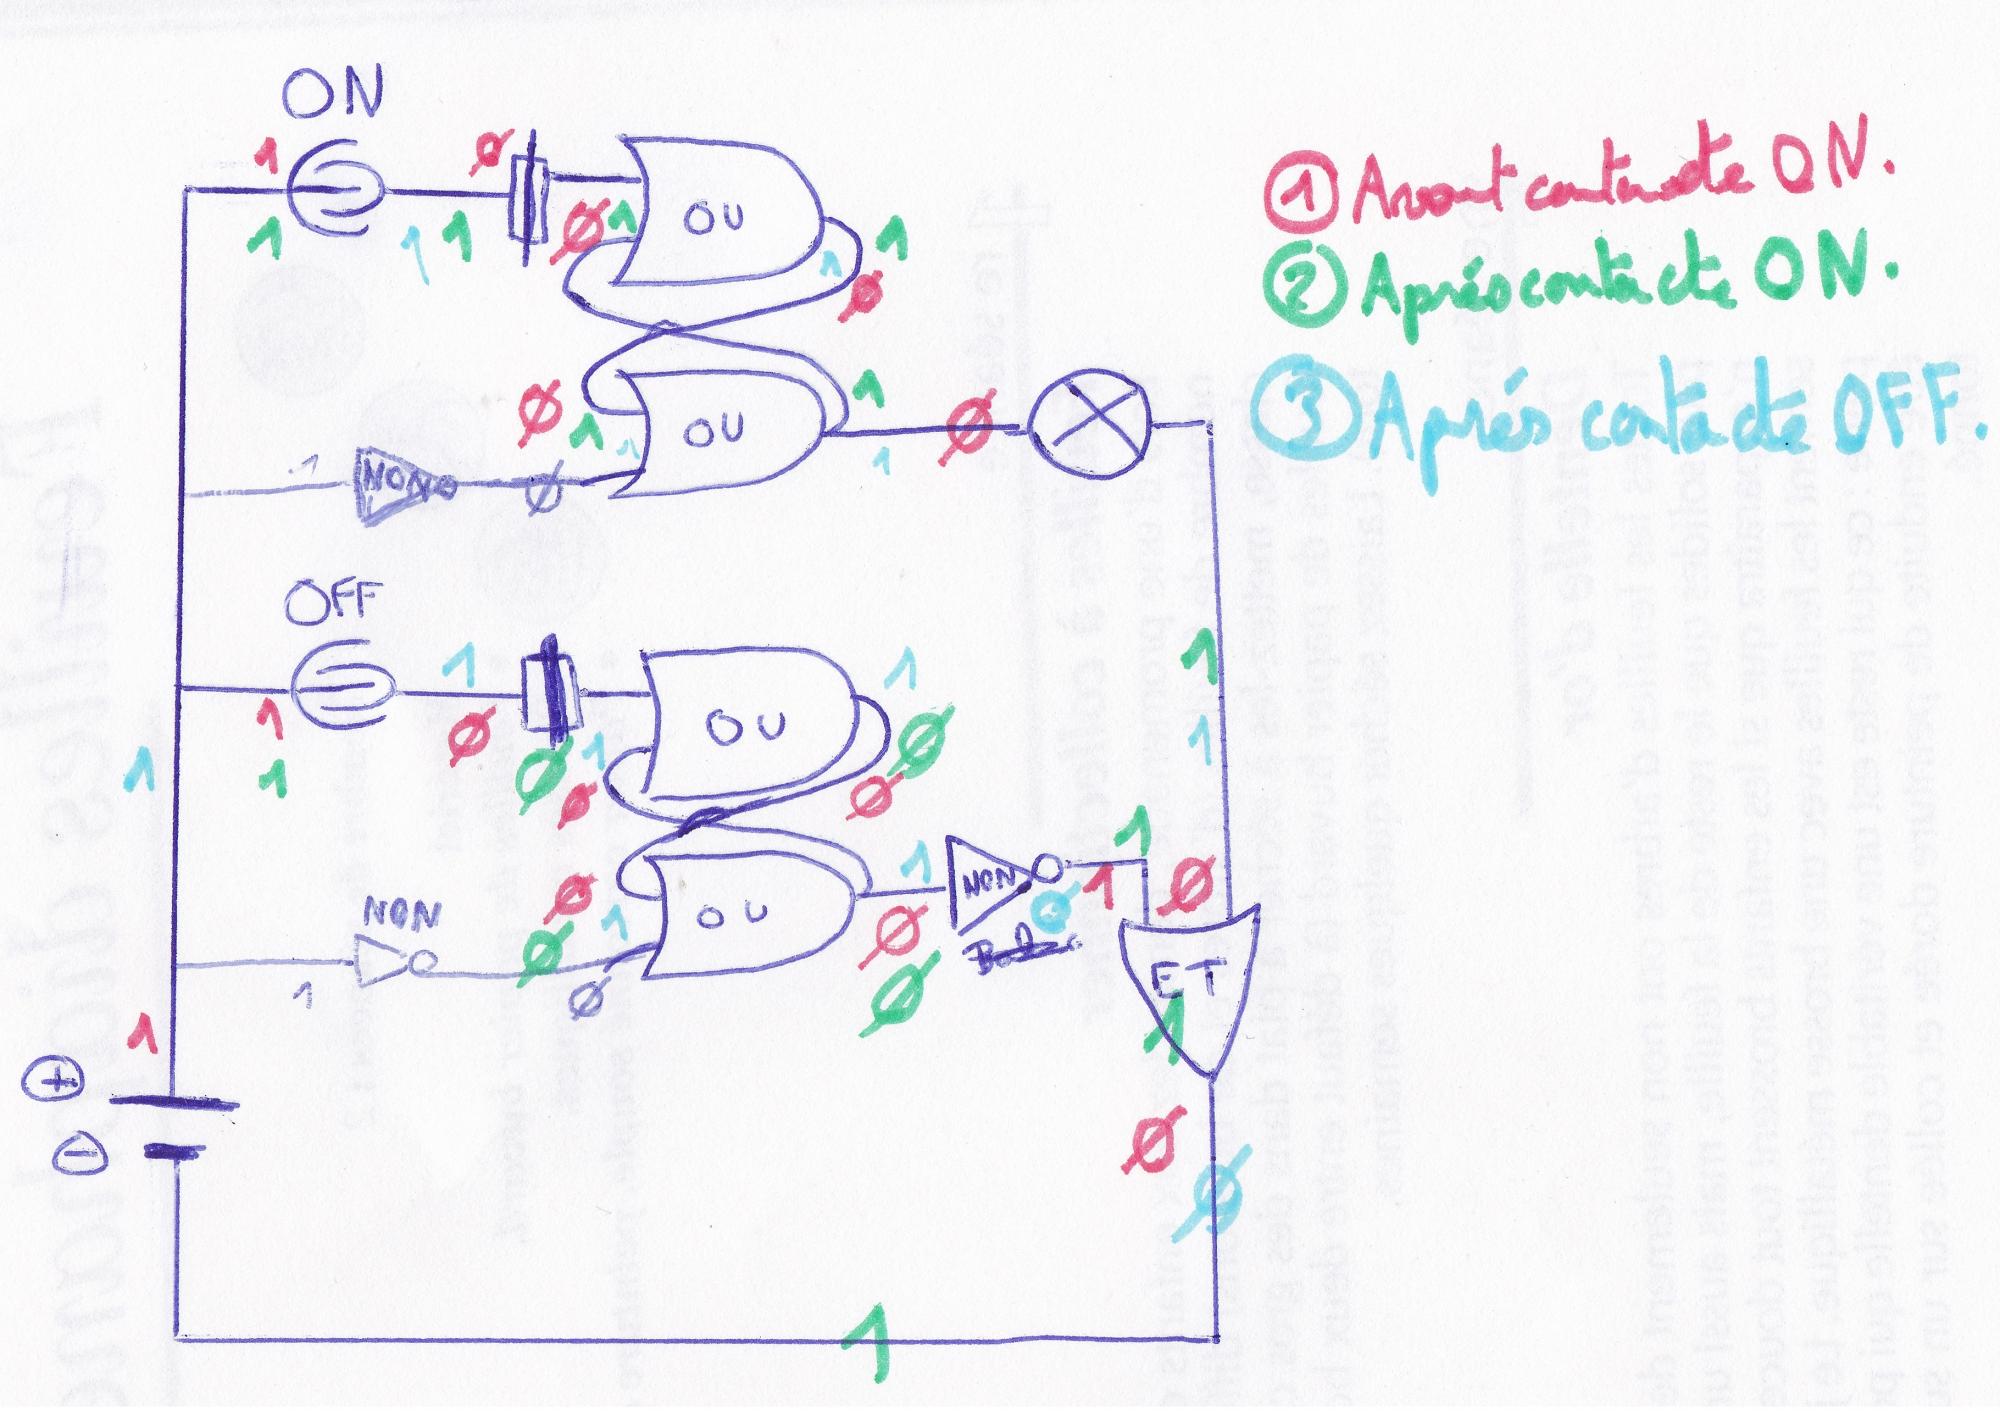 ON
1
Ø
① Avant contacte ON.
OU
1
1
1
Ø
1
1
1
Ø
② Après contacte ON.
Ø
1
1
Ø
OU
1
1
Ø
③ Après contacte OFF.
1
NON
Ø
OFF
1
1
1
1
1
Ø
OU
Ø
1
1
Ø
1
Ø
Ø
1
1
NON
Ø
Ø
1
OU
1
Ø
Ø
NON
Ø
1
1
Ø
1
Ø
ET
1
1
+
-
Ø
Ø
1